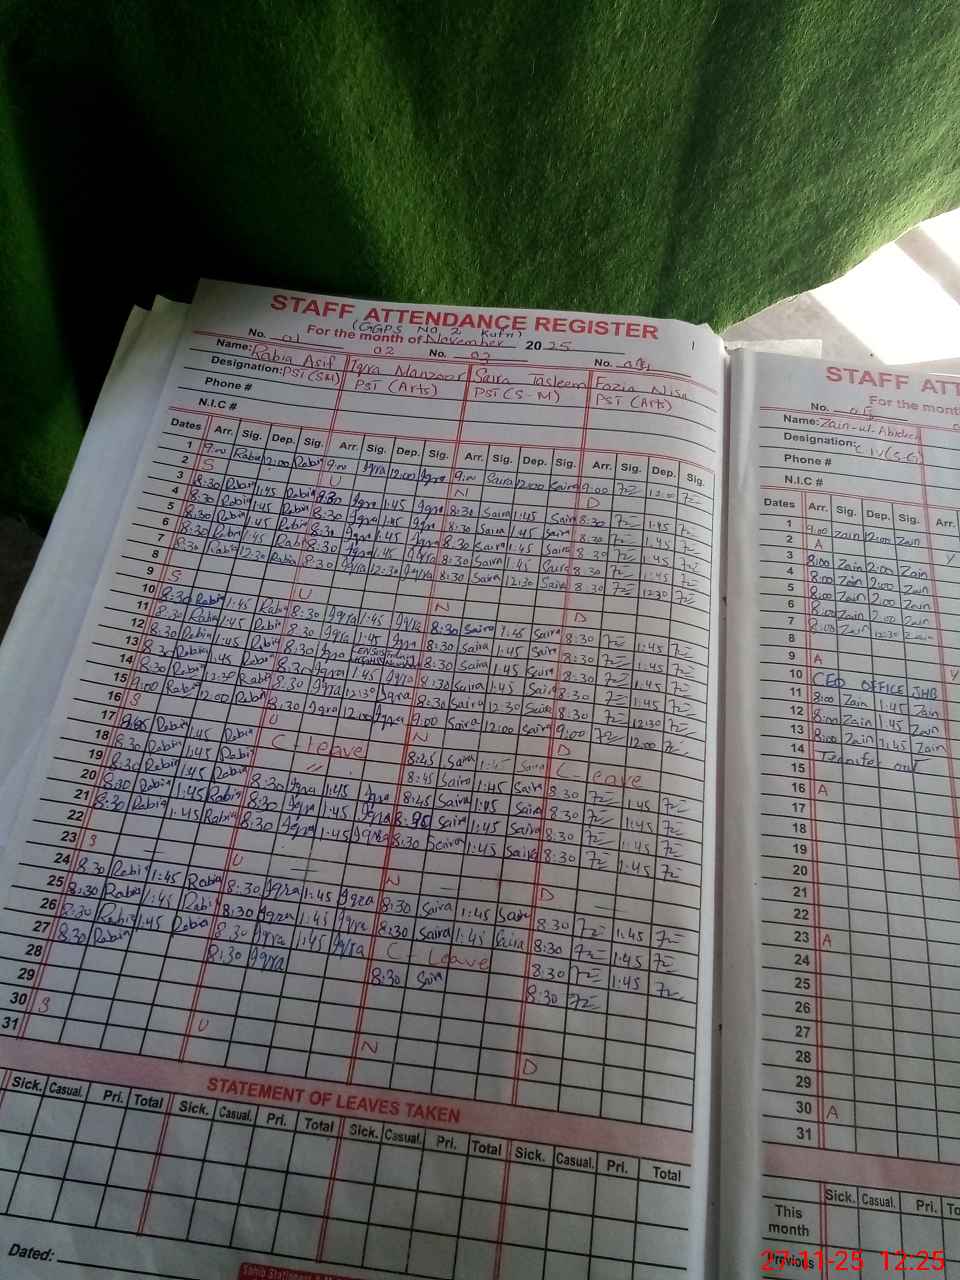 STAFF ATTENDANCE REGISTER
(GGPS No. 2 Kufri)
For the month of November 2025
1
No. 01 02 No. 03 No. 04
Name: Rabia Asif Iqra Manzoor Saira Tasleem Fazia Nisa
Designation: PST (SM) PST (Arts) PST (S-M) PST (Arts)
Phone #
N.I.C #
Dates Arr. Sig. Dep. Sig. Arr. Sig. Dep. Sig. Arr. Sig. Dep. Sig. Arr. Sig. Dep. Sig.
1 9:00 Rabia 12:00 Rabia 9:00 Iqra 12:00 Iqra 9:00 Saira 12:00 Saira 9:00 12:00
2 S U N D
3 8:30 Rabia 1:45 Rabia 8:30 Iqra 1:45 Iqra 8:30 Saira 1:45 Saira 8:30 1:45
4 8:30 Rabia 1:45 Rabia 8:30 Iqra 1:45 Iqra 8:30 Saira 1:45 Saira 8:30 1:45
5 8:30 Rabia 1:45 Rabia 8:30 Iqra 1:45 Iqra 8:30 Saira 1:45 Saira 8:30 1:45
6 8:30 Rabia 1:45 Rabia 8:30 Iqra 1:45 Iqra 8:30 Saira 1:45 Saira 8:30 1:45
7 8:30 Rabia 12:30 Rabia 8:30 Iqra 12:30 Iqra 8:30 Saira 12:30 Saira 8:30 12:30
8
9 S U N D
10 8:30 Rabia 1:45 Rabia 8:30 Iqra 1:45 Iqra 8:30 Saira 1:45 Saira 8:30 1:45
11 8:30 Rabia 1:45 Rabia 8:30 Iqra 1:45 Iqra 8:30 Saira 1:45 Saira 8:30 1:45
12 8:30 Rabia 1:45 Rabia 8:30 Iqra 8:30 Saira 1:45 Saira 8:30 1:45
13 8:30 Rabia 1:45 Rabia 8:30 Iqra 1:45 Iqra 8:30 Saira 1:45 Saira 8:30 1:45
14 8:30 Rabia 12:30 Rabia 8:30 Iqra 12:30 Iqra 8:30 Saira 12:30 Saira 8:30 12:30
15 9:00 Rabia 12:00 Rabia 8:30 Iqra 12:00 Iqra 9:00 Saira 12:00 Saira 9:00 12:00
16 S U N D
17 Rabia 1:45 Rabia C-Leave 8:45 Saira 1:45 Saira C-Leave
18 8:30 Rabia 1:45 Rabia " 8:45 Saira 1:45 Saira 8:30 1:45
19 8:30 Rabia 1:45 Rabia 8:30 Iqra 1:45 Iqra 8:45 Saira 1:45 Saira 8:30 1:45
20 8:30 Rabia 1:45 Rabia 8:30 Iqra 1:45 Iqra Saira 1:45 Saira 8:30 1:45
21 8:30 Rabia 1:45 Rabia 8:30 Iqra 1:45 Iqra 8:30 Saira 1:45 Saira 8:30 1:45
22
23 S U N D
24 8:30 Rabia 1:45 Rabia 8:30 Iqra 1:45 Iqra 8:30 Saira 1:45 Saira 8:30 1:45
25 8:30 Rabia 1:45 Rabia 8:30 Iqra 1:45 Iqra 8:30 Saira 1:45 Saira 8:30 1:45
26 8:30 Rabia 1:45 Rabia 8:30 Iqra 1:45 Iqra C-Leave 8:30 1:45
27 8:30 Rabia 8:30 Iqra 8:30 Saira 8:30
28
29
30 S U N D
31
STATEMENT OF LEAVES TAKEN
Sick. Casual. Pri. Total Sick. Casual. Pri. Total Sick. Casual. Pri. Total Sick. Casual. Pri. Total
Dated:
STAFF ATT
For the mont
No. 05
Name: Zain-ul-Abideen
Designation: C-IV (S.G)
Phone #
N.I.C #
Dates Arr. Sig. Dep. Sig. Arr.
1 9:00 Zain 12:00 Zain
2 A
3 8:00 Zain 2:00 Zain
4 8:00 Zain 2:00 Zain
5 8:00 Zain 2:00 Zain
6 8:00 Zain 2:00 Zain
7 8:00 Zain 12:30 Zain
8
9 A
10 CEO OFFICE JHB
11 8:00 Zain 1:45 Zain
12 8:00 Zain 1:45 Zain
13 8:00 Zain 1:45 Zain
14 Transfer out
15
16 A
17
18
19
20
21
22
23 A
24
25
26
27
28
29
30 A
31
Sick. Casual. Pri. To
This month
Previous
27-11-25 12.25